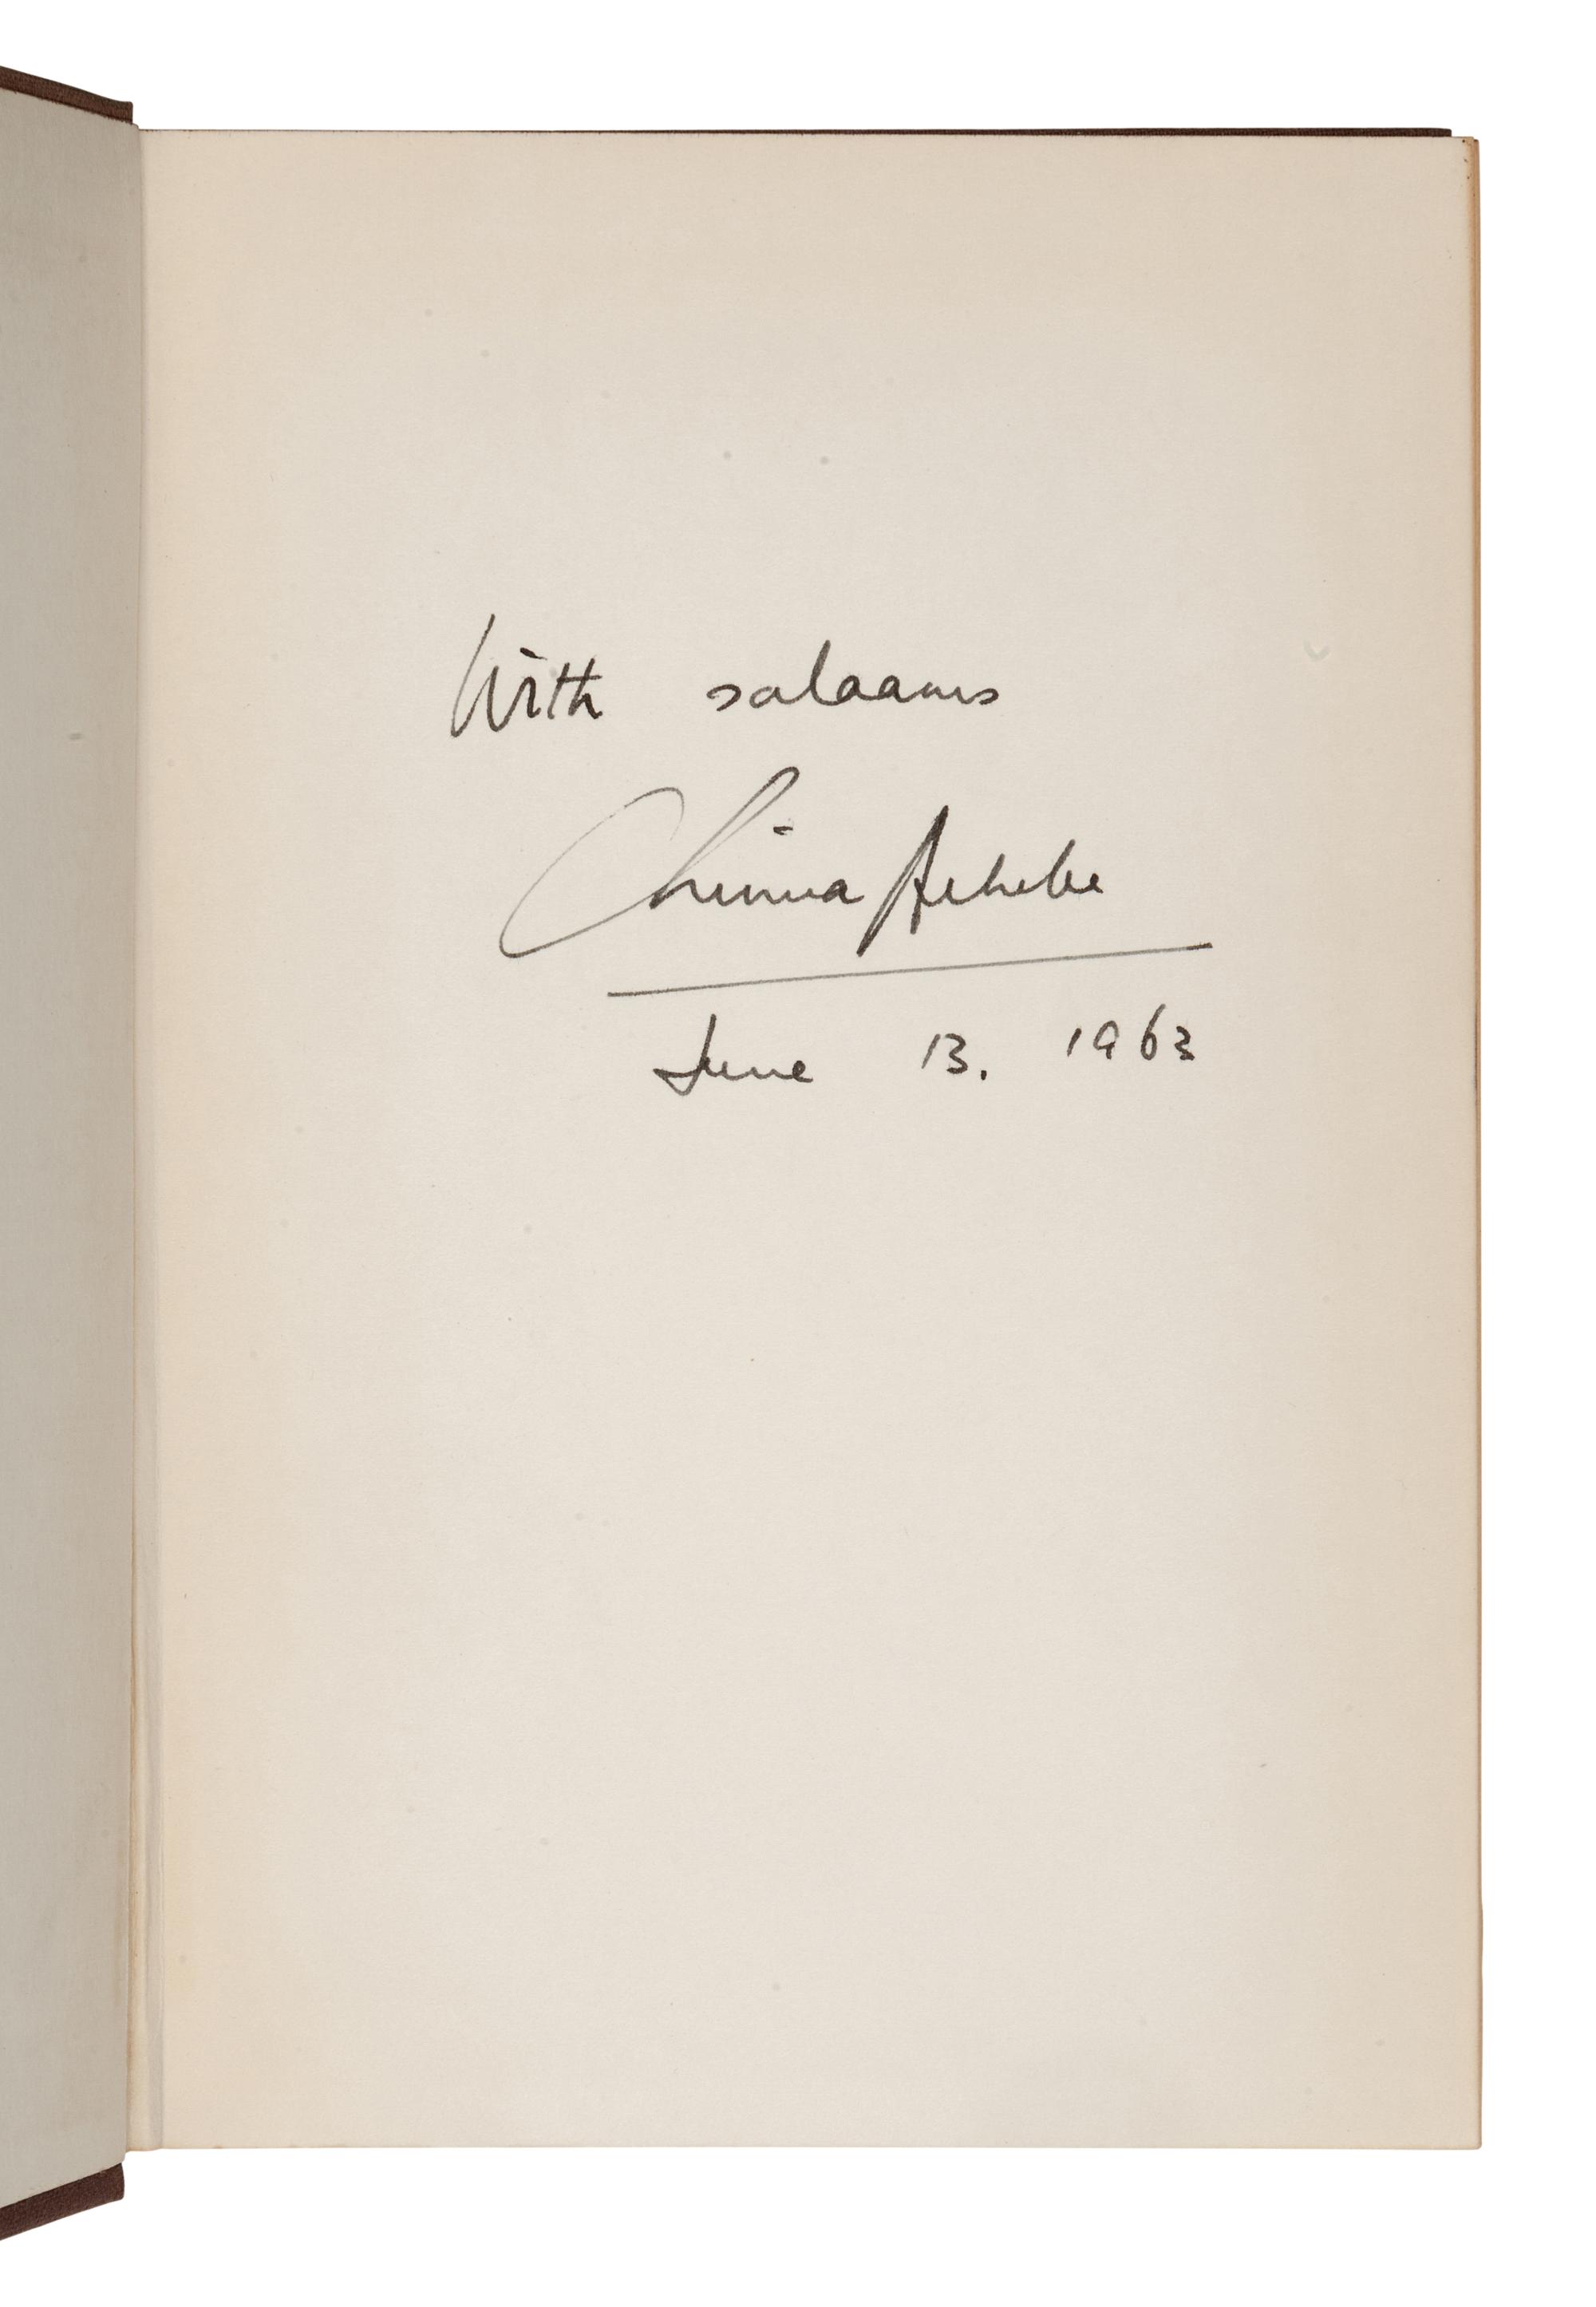 With salaams
Chinua Achebe
June 13. 1963